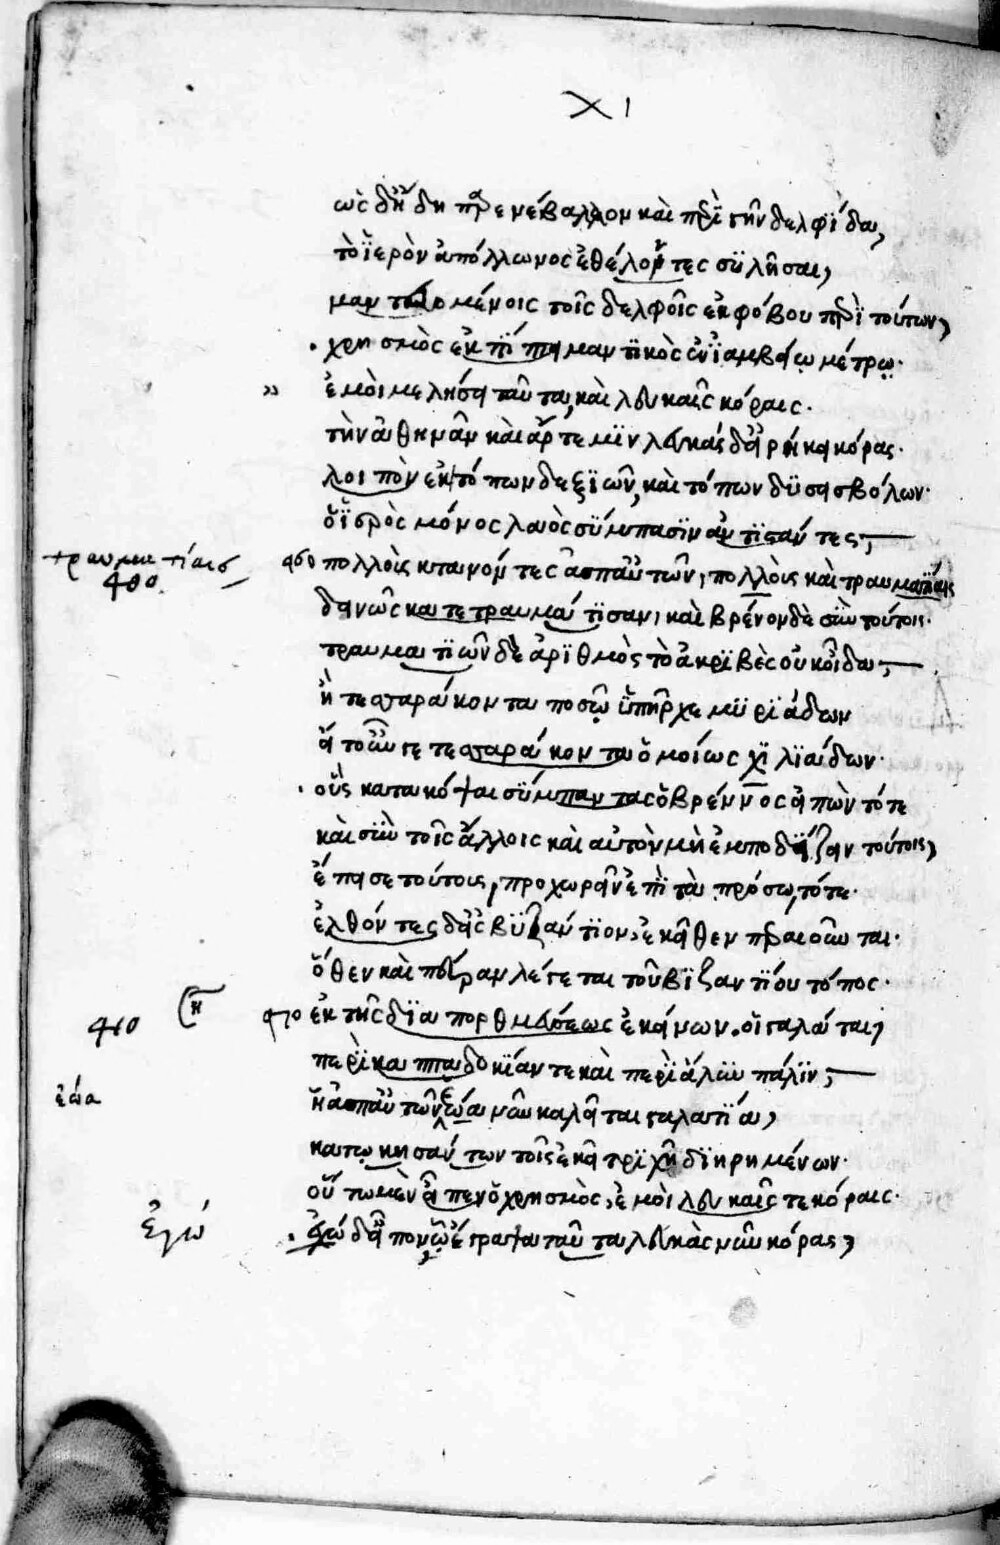 XI
ὡς δ' ἤδη παρενέβαλλον καὶ περὶ γῆν δελφίδα,
τὸ ἱερὸν ἀπόλλωνος ἐθέλοντες συλῆσαι,
μαντευομένοις τοῖς δελφοῖς ἐκ φόβου περὶ τούτων,
χρησμὸς ἐκπίπτει μαντικὸς ἐν ἰαμβείῳ μέτρῳ·
" ἐμοὶ μελήσει ταῦτα, καὶ λευκαῖς κόραις.
τὴν ἀθηνᾶν καὶ ἄρτεμιν λευκάς δ' εἴρηκα κόρας·
λοιπὸν ἐκ τόπων δεξιῶν, καὶ τόπων δυσεισβόλων·
ὁ ἱερὸς μόνος λαὸς σύμπασιν ἀντιστάντες,
τραυματίαις 460 πολλοὺς κταίνοντες ἀπ' αὐτῶν, πολλοὺς καὶ τραυματίαις
460
δεινῶς κατετραυμάτισαν, καὶ βρένον δὲ σὺν τούτοις.
τραυματιῶν δὲ ἀριθμὸς τὸ ἀκριβὲς οὐκ οἶδα,
ἢ τεσσαράκοντα ποσῶ ὑπῆρχε μυριάδων
ἢ τούτων γε τεσσαράκοντα ὁμοίως χιλιάδων·
οὓς κατακόψαι σύμπαντας ὁ βρέννος εἰπὼν τότε
καὶ σὺν τοῖς ἄλλοις καὶ αὐτὸν μὴ ἐμποδίζειν τούτοις,
ἔπεισε τούτοις, προχωρεῖν ἐπὶ τὰ πρόσω, τότε·
ἐλθόντες δ' εἰς βυζάντιον, ἐκεῖθεν περαιοῦνται.
ὅθεν καὶ πέραν λέγεται τοῦ βιζαντίου τόπος.
470 470 ἐκ τῆς διαπορθμεύσεως ἐκείνων. οἱ γαλάται,
περὶ καππαδοκίαν τε καὶ περὶ ἅλυν πάλιν,
ἑώα ἢ ἀπ' αὐτῶν ἑώα νῦν καλεῖται γαλατία,
κατῳκησαν των τοῖς ἐκεῖ τριχῆ διῃρημένων·
οὕτω μὲν εἶπεν ὁ χρησμὸς, ἐμοὶ λευκαῖς τε κόραις.
ἐγώ ἐγώ δ' εἶπον ᾧ ἔγραψα ταῦτα λευκὰς νῦν κόρας,